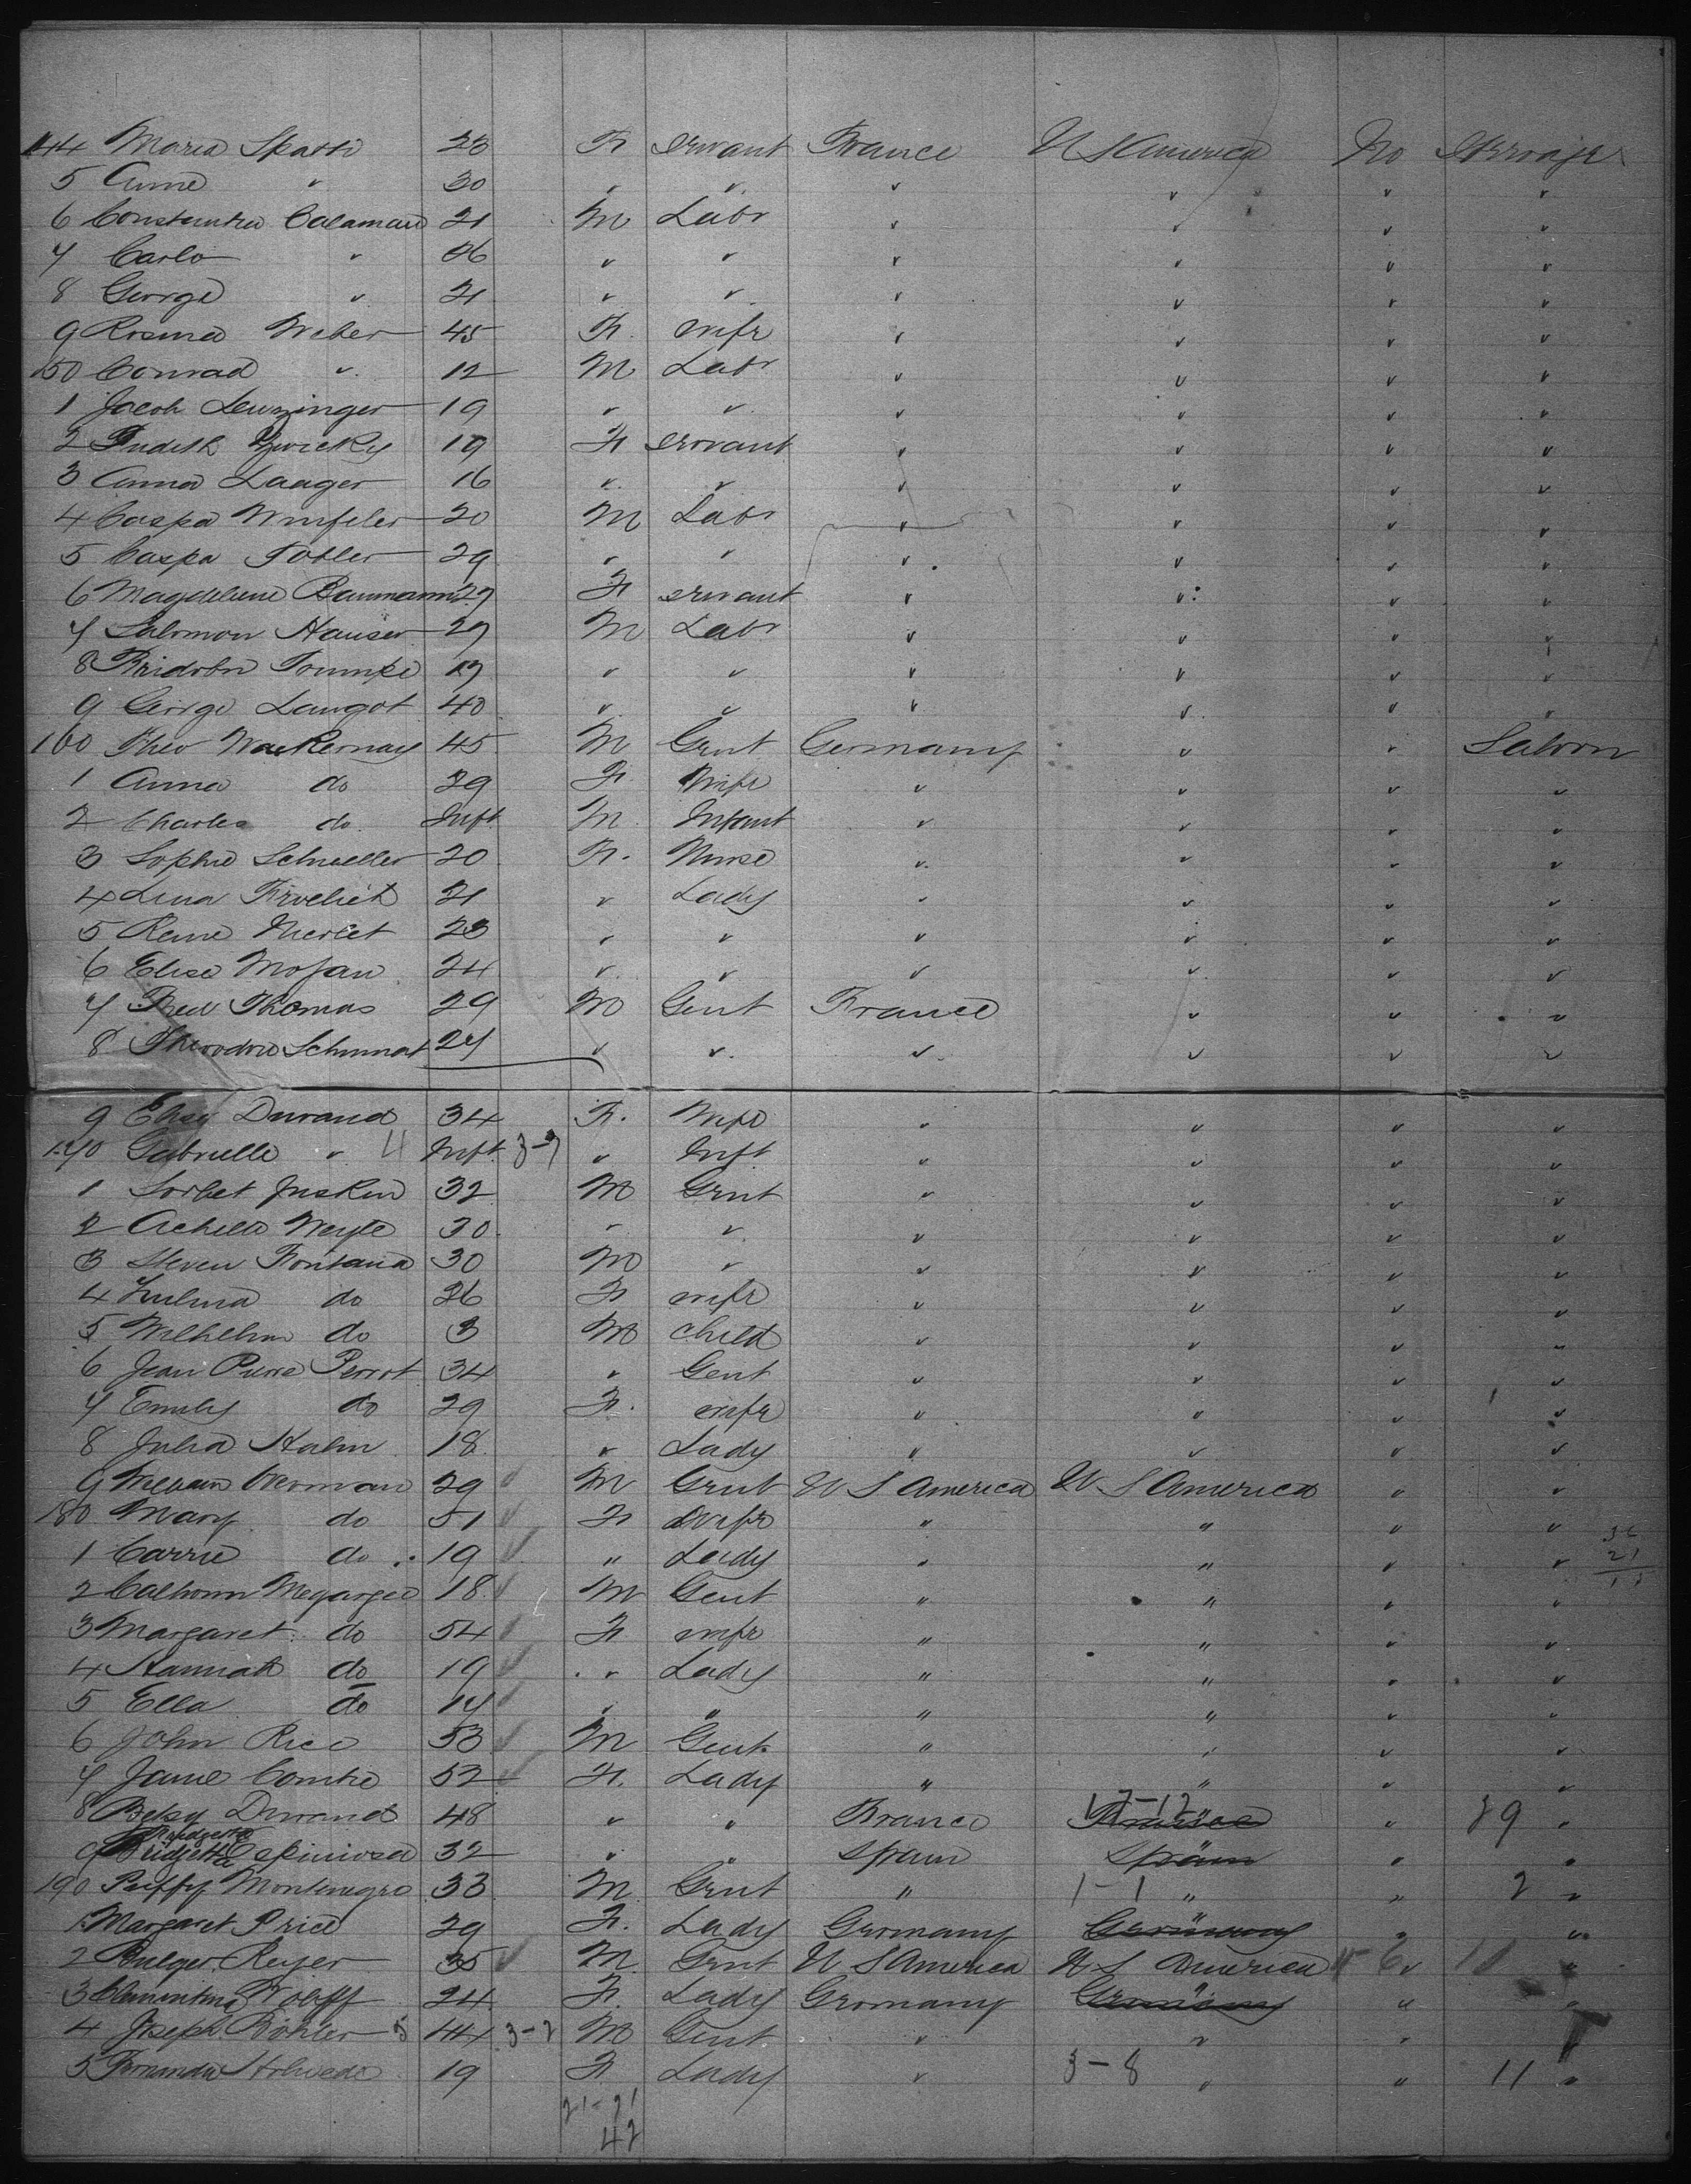 144 Maria Spatti 23 F servant France U S America No Steerage
5 Anne " 30 " " " " " "
6 Constantin Calaman 21 M Labr " " " "
7 Carlo " 26 " " " " " "
8 George " 21 " " " " " "
9 Rosina Weber 45 F. wife " " " "
150 Conrad " 12 M Labr " " " "
1 Jacob Leuzinger 19 " " " " " "
2 Judith Zwicky 19 F servant " " " "
3 Anna Laager 16 " " " " " "
4 Caspa 20 M Labr " " " "
5 Caspa Tobler 29 " " " " " "
6 Magdelene Baumann 29 F servant " " " "
7 Salomon Hauser 29 M Labr " " " "
8 Fridolin 19 " " " " " "
9 George Langot 40 " " " " " "
160 Theo Wackernay 45 M Gent Germany " " Saloon
1 Anna do 29 F. Wife " " " "
2 Charles do. Inft. M. Infant " " " "
3 Sophie Schueller 20 F. Nurse " " " "
4 Lina Froelich 21 " Lady " " " "
5 Rene Merlet 23 " " " " " "
6 Elise Mojan 24 " " " " " "
7 Fred Thomas 29 M Gent France " " "
8 Theodore Schunat 27 " " " " " "
9 Elise Durand 34 F. Wife " " " "
170 Gabrielle " 4 Inft. 3-7 " Inft " " " "
1 Sorbet Juskin 32 M Gent " " " "
2 Achille Weyle 30 " " " " " "
3 Steven Fontana 30 M " " " " "
4 Zulma do 26 F wife " " " "
5 Wilhelm do 3 M child " " " "
6 Jean Pierre Perrot 34 " Gent " " " "
7 Emily do 29 F. wife " " " "
8 Julia Kahn 18 " Lady " " " "
9 William Overman 29 M Gent U S America U S America " "
180 Mary do 51 F Wife " " " "
1 Carrie do 19 " Lady " " " "
2 Calhoun Megargee 18 M Gent " " " "
3 Margaret do 54 F wife " " " "
4 Hannah do 19 " Lady " " " "
5 Ella do 17 " " " " " "
6 John Rice 53 M Gent " " " "
7 Jane Combe 52 F. Lady " " " "
8 Betsy Durand 48 " " France France 12-12 " 29 "
9 Bridjetta Espiniosa 32 " " Spain Spain " "
190 Montenegro 33 M Gent " 1-1 " " 2 "
1 Margaret Price 29 F. Lady Germany Germany " "
2 Bulger Reyer 35 M Gent U S America U S America " 10 "
3 Clementine Wolff 24 F. Lady Germany Germany " "
4 Joseph Böhler 5 44 3-2 M Gent " " " "
5 19 F Lady " 3-8 " " 11 "
21-21
42